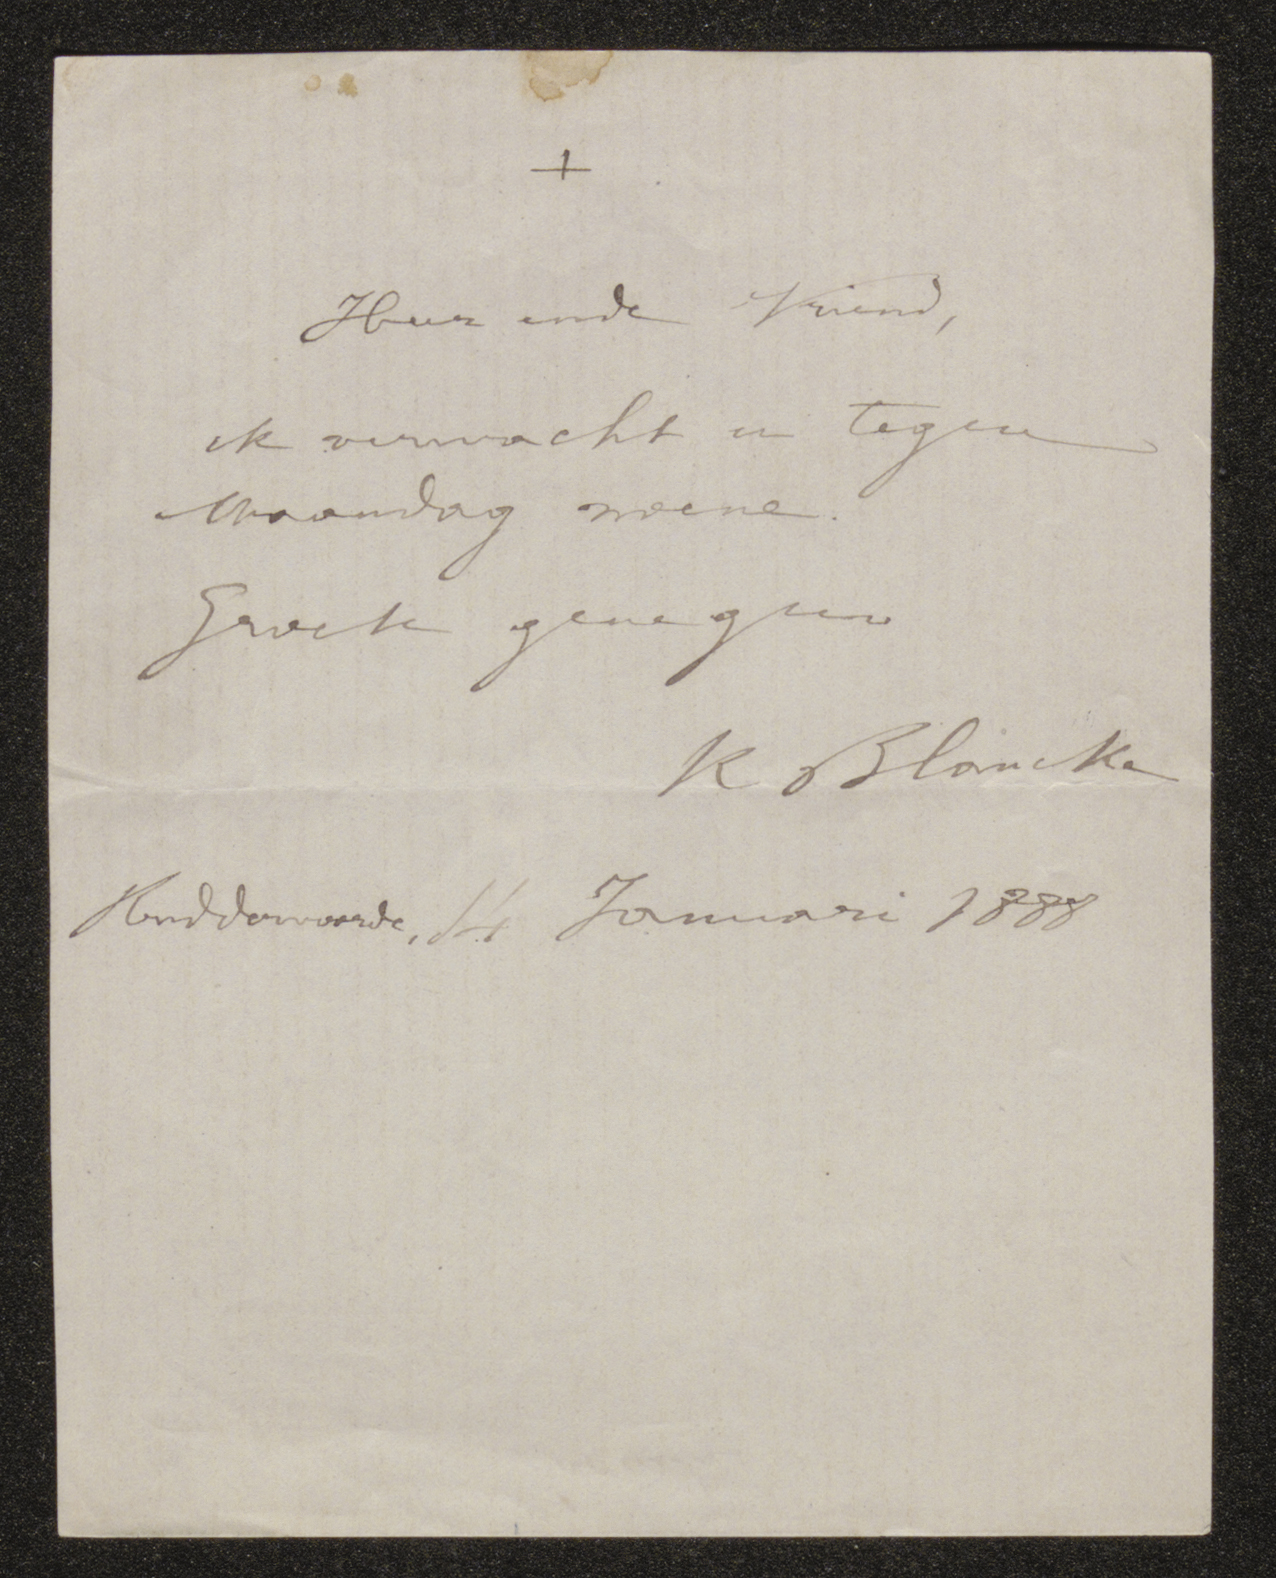 +
Heer ende Vriend,
ik verwacht u tegen
Maandag noene.
Groete genegen
K Blancke
Ruddervoorde, 14 Januari 1888